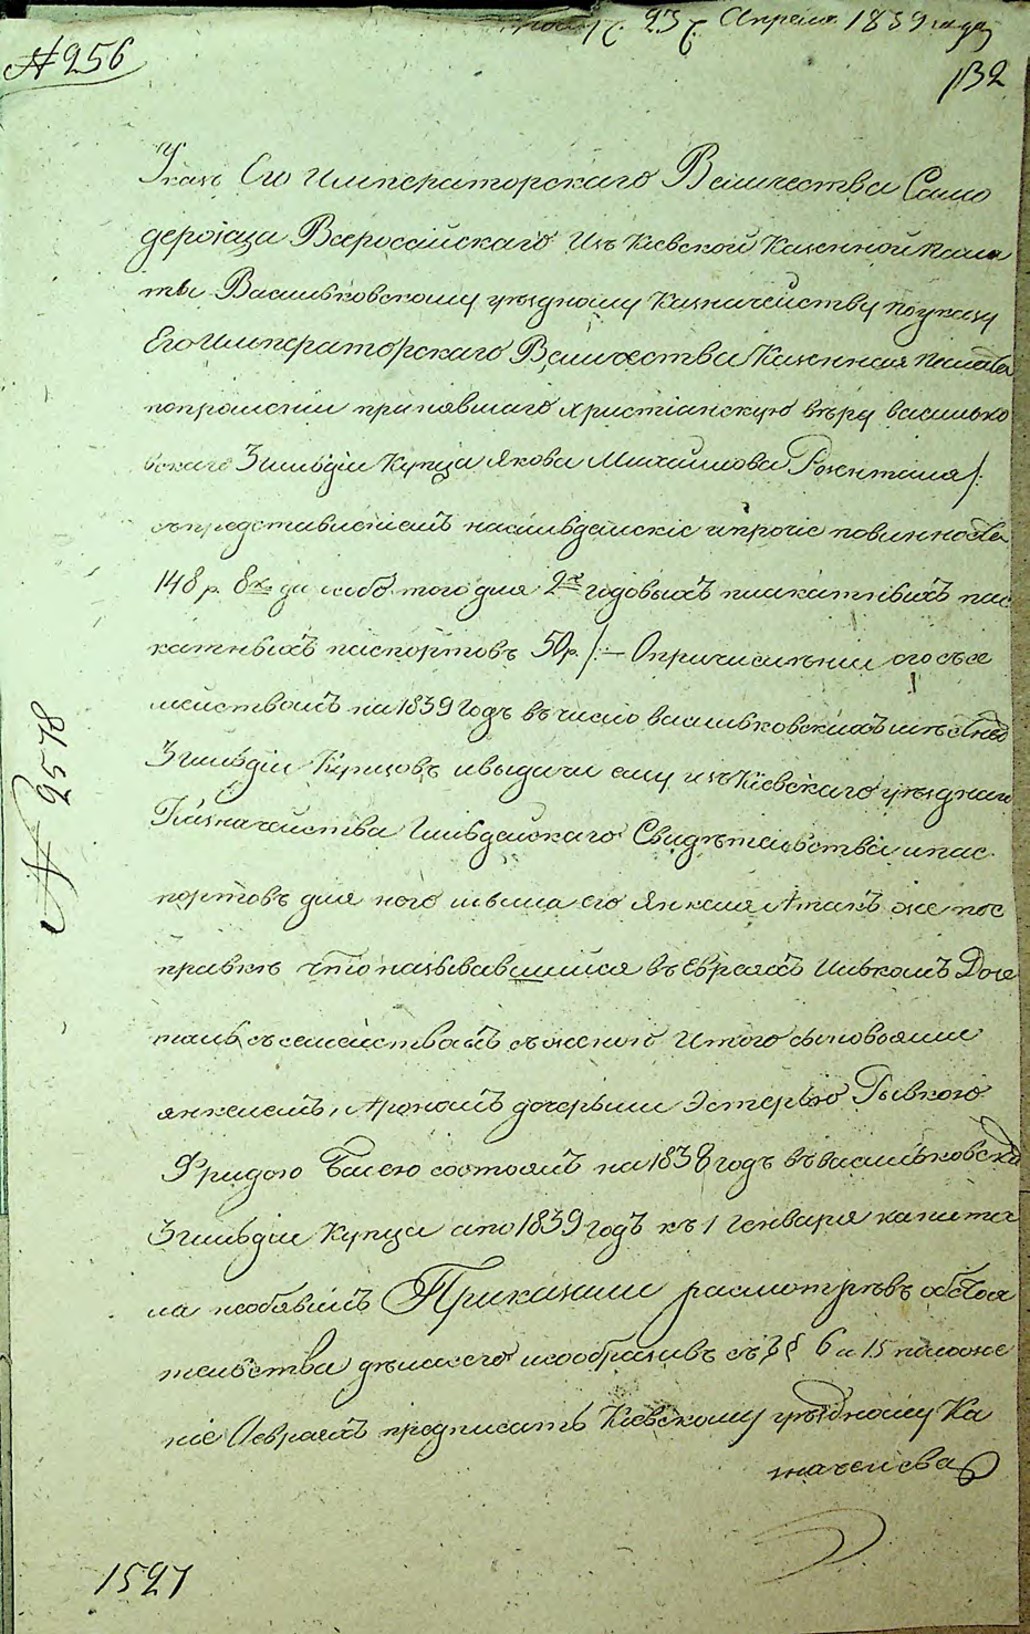 23 Апреля 1839 года
№ 256
132
Указъ Его Императорскаго Величества Само
держца Всеросійскаго Изъ Кіевской Казенной Пала
ты Васильковскому уездному Казначейству по указу
Его Императорскаго Величества Казенная Палата
попрошенію принявшаго христіанскую веру василько
вскаго 3 гильдіи Купца Якова Михайлова Розенталя /:
съ представленіемъ на гильдейскіе и прочіе повинности
148 р. 8 к. да особо того для 2х годовыхъ плакатныхъ пас
катныхъ паспортовъ 50 р. /: – О причисленіи его съ се
мействомъ на 1839 годъ въ число васильковскихъ
3 гильдіи Купцовъ и выдачи ему изъ Кіевскаго уезднаго
Казначейства Гильдейскаго Свидетельства и пас
портовъ для него и сына его Янкеля А такъ же пос
правкъ что называвшийся въ Евреяхъ Ицькомъ
таль съ семействомъ съ женою Итого сыновьями
янкелемъ, Арономъ дочерьми Эстерью Рывкою
Фридою Басею состоялъ на 1838 годъ въ васильковски
3 гильдіи Купцы а по 1839 годъ къ 1 генваря капита
ла необявилъ Приказали расмотревъ обстоя
тельства дела сего и сообразивъ съ §§ 6 и 15 положе
ніе О евреяхъ предписать Кіевскому уездному Ка
значейства
№ 2578
1527